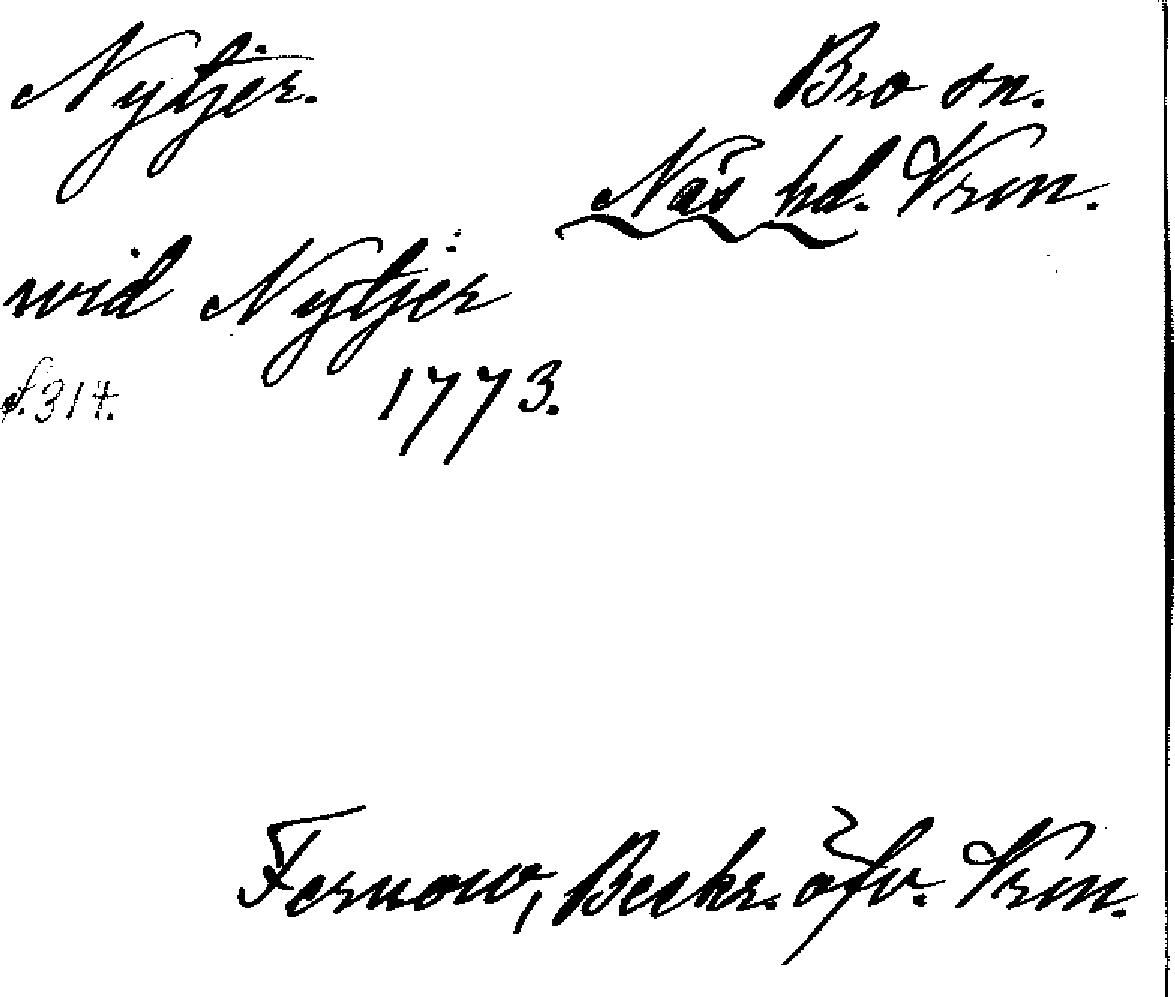 Nytjer.
Bro sn.
Näs hd. Vrm.
wid Nytjer
s. 314.
1773.
Fernow, Beskr. öfv. Vrm.